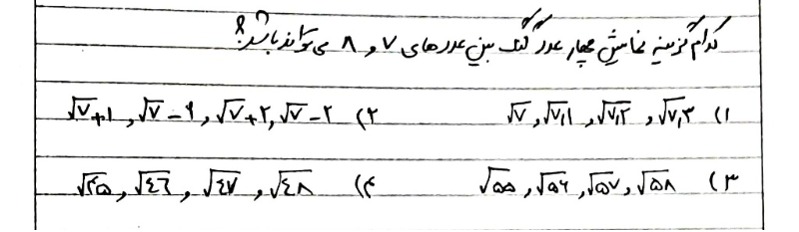 کدام گزینه نمایش چهار عدد گنگ بین عددهای ۷ و ۸ می‌تواند باشد؟
۱) √۷٫۳ , √۷٫۲ , √۷٫۱ , √۷
۲) √۷−۲ , √۷+۲ , √۷−۱ , √۷+۱
۳) √۵۸ , √۵۷ , √۵۶ , √۵۵
۴) √۴۸ , √۴۷ , √۴۶ , √۴۵